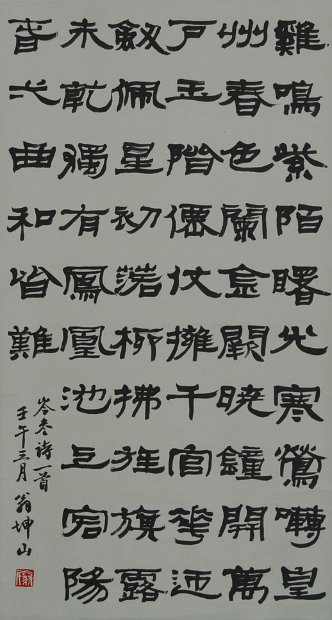 雞鳴紫陌曙光寒鶯囀皇
州春色闌金闕曉鐘開萬
戶玉階僊仗擁千官花迎
劒佩星初落柳拂旌旗露
未乾獨有鳳凰池上客陽
春弌曲和皆難
岑參詩一首
壬午三月翁坤山